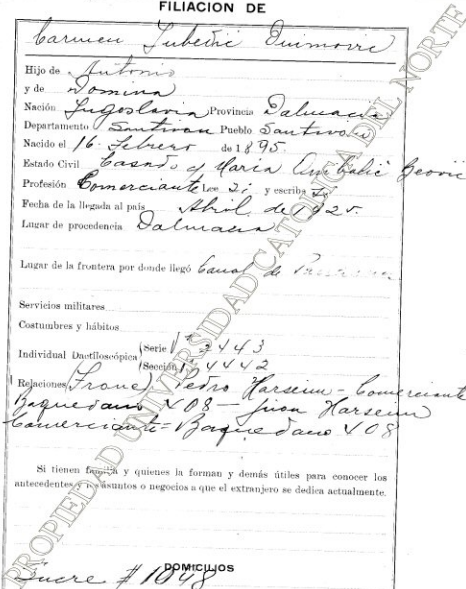 FILIACION DE
Carmen Lubetic Quimovic
Hijo de Antonio
y de Domina
Nación Jugoslavia Provincia Dalmacia
Departamento Santivan Pueblo Santivan
Nacido el 16 Febrero de 1895
Estado Civil Casado c/ Maria
Profesión Comerciante Lee Si y escribe Si
Fecha de la llegada al país Abril de 1925.
Lugar de procedencia Dalmacia
Lugar de la frontera por donde llegó Canal de Panama
Servicios militares
Costumbres y hábitos
Individual Dactiloscópica Serie V 2443
Sección 4442
Relaciones Pedro Harseim - Comerciante
Baquedano 408 - Juan Harseim
Comerciante = Baquedano 408
Si tienen familia y quienes la forman y demás útiles para conocer los
antecedentes y los asuntos o negocios a que el extranjero se dedica actualmente.
DOMICILIOS
Sucre # 1048
PROPIEDAD UNIVERSIDAD CATOLICA DEL NORTE